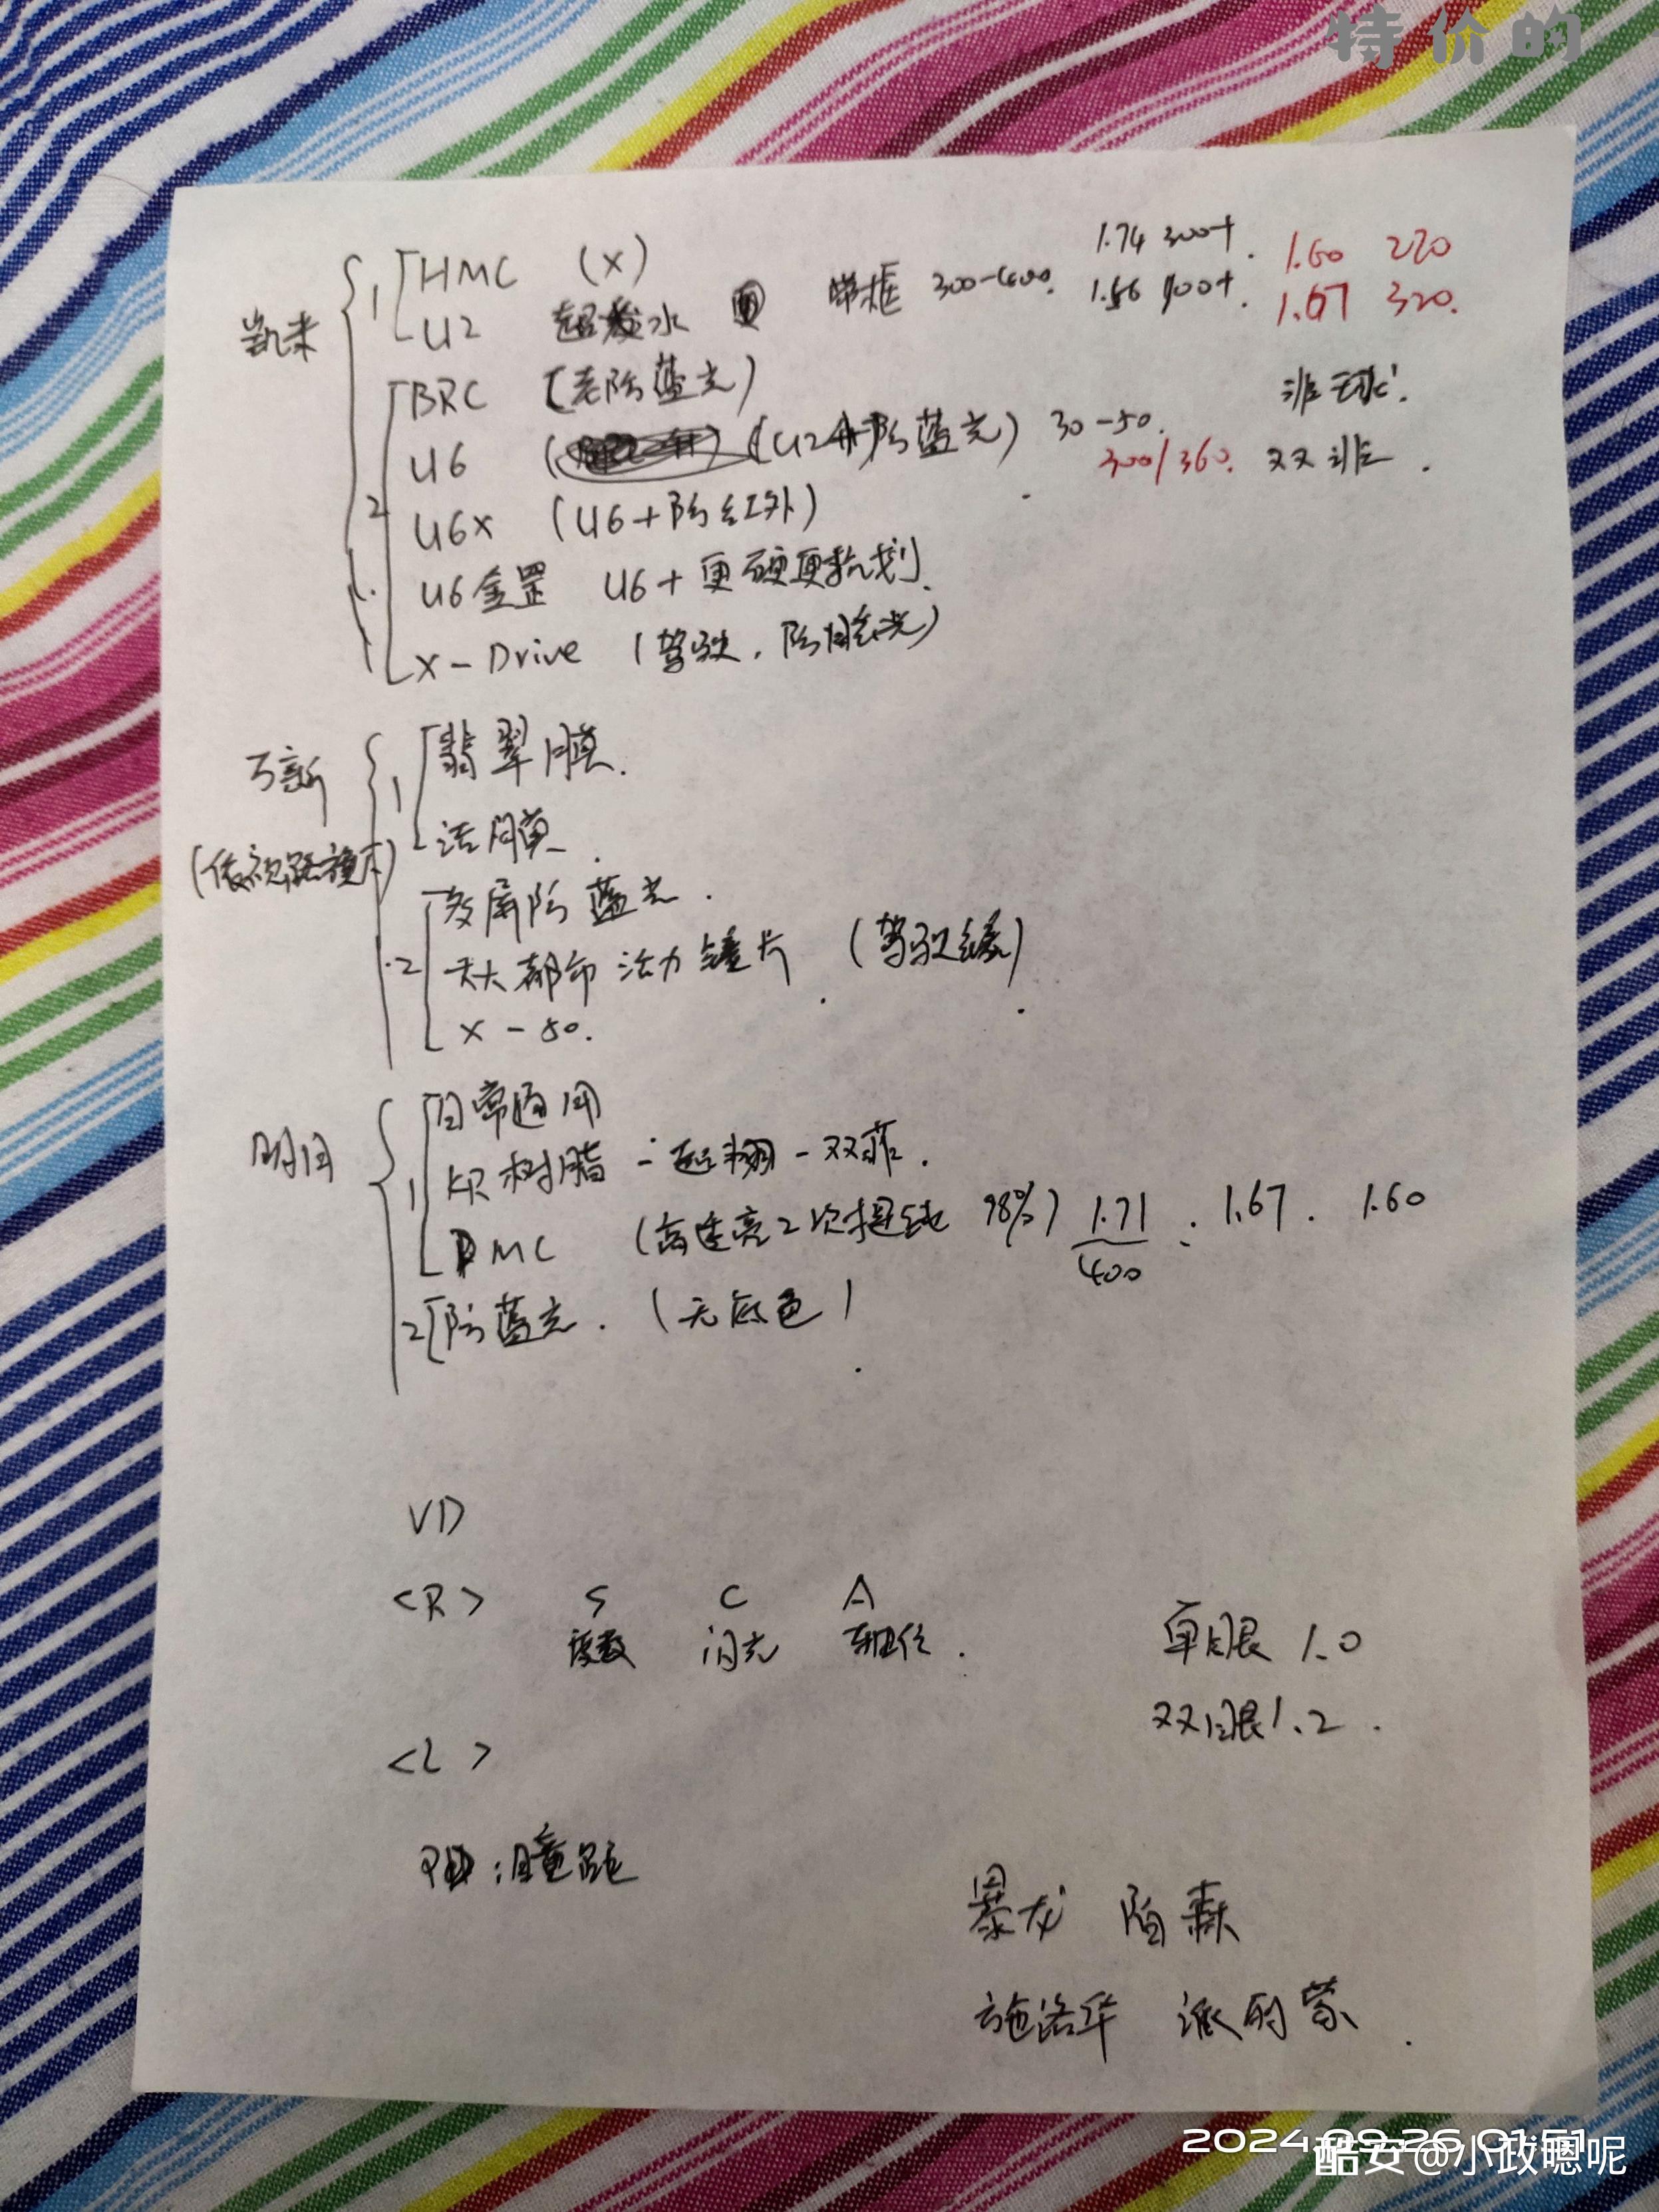 特价的
凯米 1 HMC (X)
U2 超发水 带框 300-400. 1.74 300+. 1.60 220
1.56 400+. 1.67 320.
BRC (老防蓝光) 非球.
2 U6 (U2+防蓝光) 30-50. 300/360. 双非.
U6x (U6+防红外)
U6金罡 U6+更硬更抗划.
x-Drive (驾驶.防眩光)
万新 1 翡翠膜.
(依视路技术) 洁膜.
2 多屏防蓝光.
大都市活力镜片 (驾驶级)
x-50.
明月 1 日常通用
KR树脂 - 超翔 - 双非.
PMC (高透亮2次提纯 98%) 1.71 . 1.67 . 1.60
400
2 防蓝光. (无底色)
VD
<R> S C A
度数 闪光 轴位. 单眼 1.0
双眼 1.2.
<L>
PD:瞳距
暴龙 陌森
施洛华 派的蒙.
2024.09.26 01:51
酷安@小政嗯呢